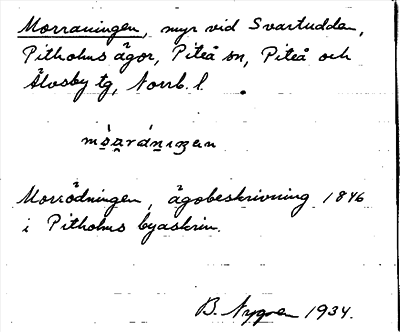 Morraningen, myr vid Svartudden,
Pitholms ägor, Piteå sn, Piteå och
Älvsby tg, Norrb. l.
Morrödningen, ägobeskrivning 1846
i Pitholms byaskrin.
B. Nygren 1934.